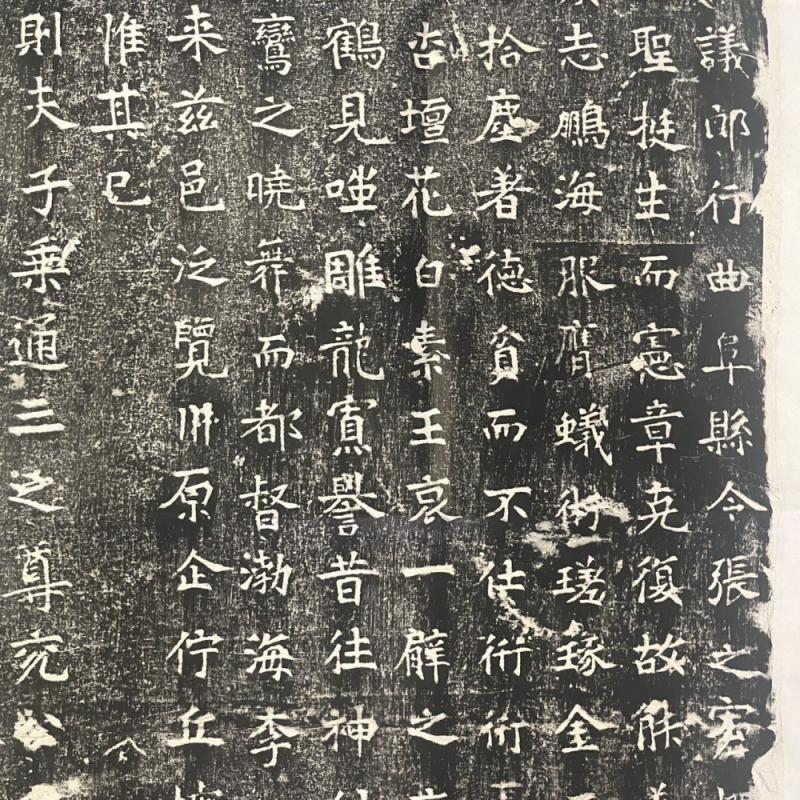 議郎行曲阜縣令張之宏
聖挺生而憲章堯復故能
志鵬海服膺蟻術瑳琢金
拾塵著德貧而不仕衎衎
杏壇花白素王哀一辟之
鶴見唑雕龍寡譽昔往神
鸞之曉舞而都督渤海李
来茲邑泛覽川原企佇丘
惟其已
則夫子乗通三之尊兖公